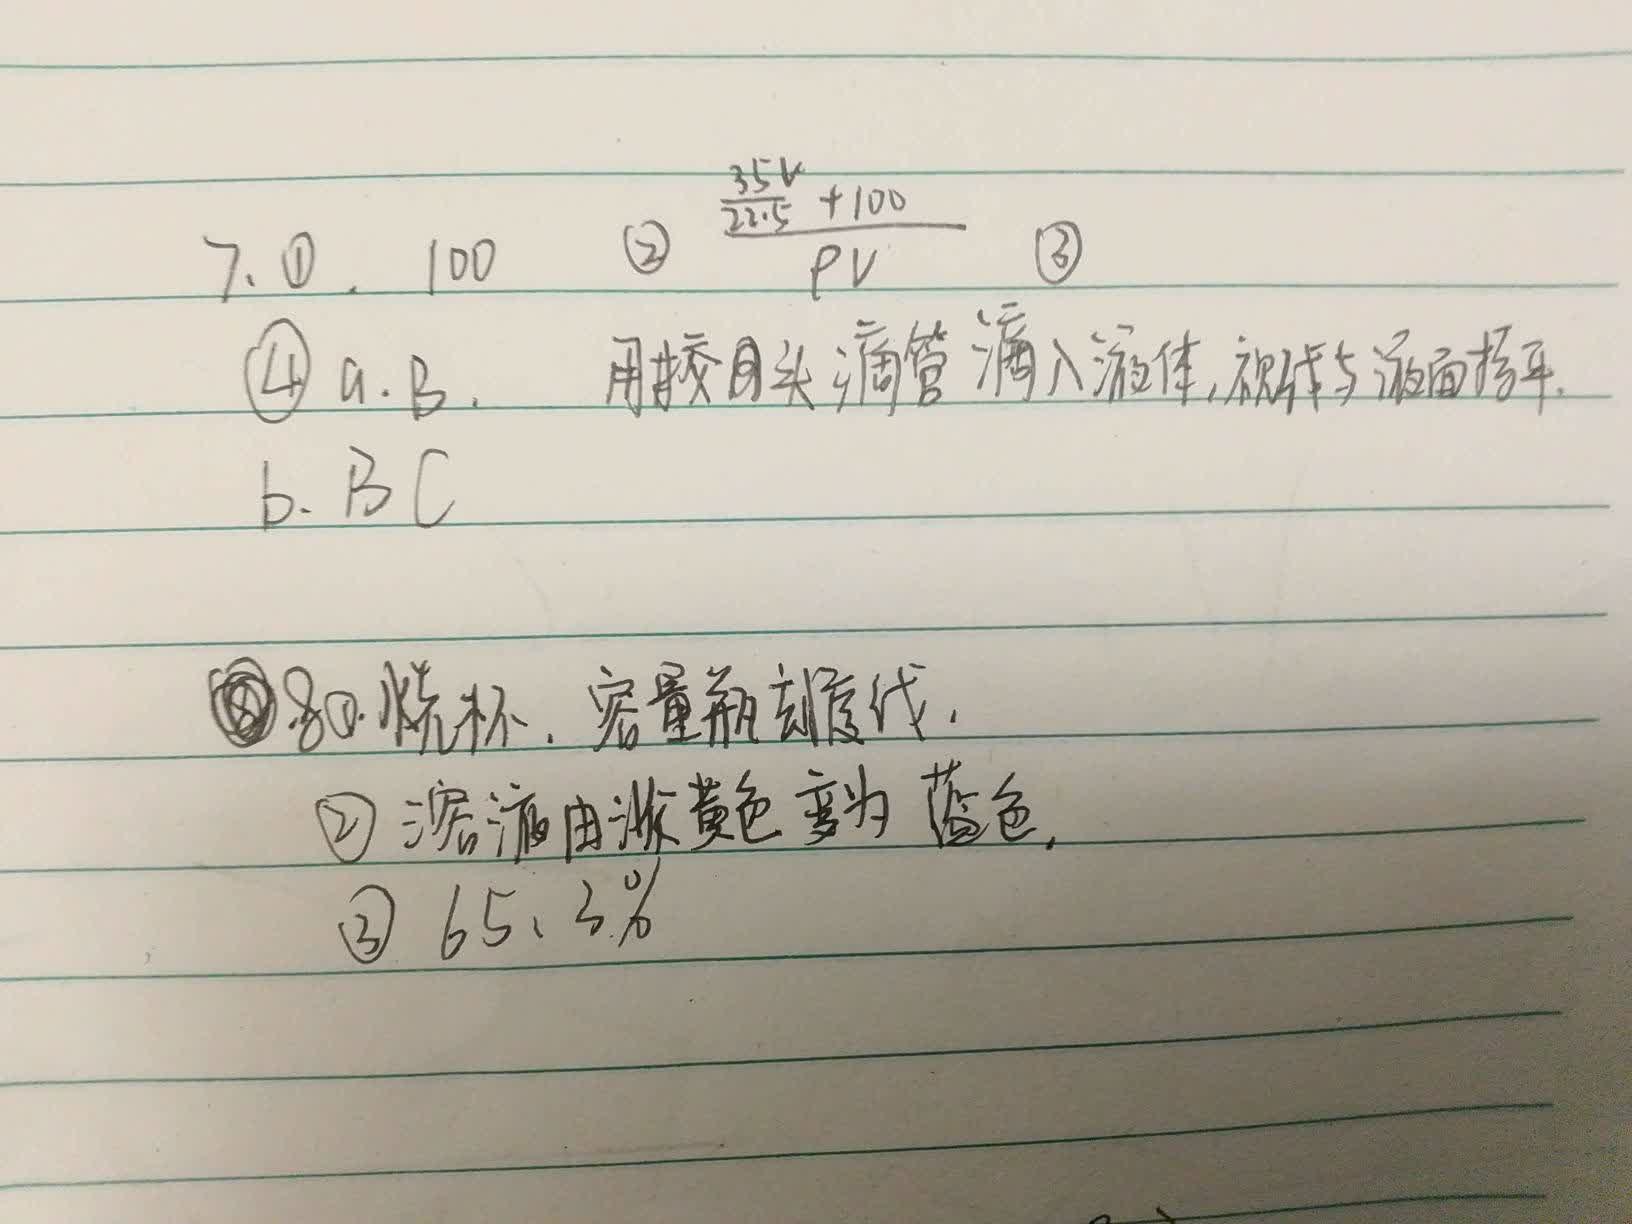 7.①. 100 ② (35V/22.5 + 100)/ρV ③
④ a.B. 用胶头滴管滴入液体,视线与液面持平.
b. BC
8①.烧杯. 容量瓶刻度线.
② 溶液由浅黄色变为蓝色.
③ 65.3%